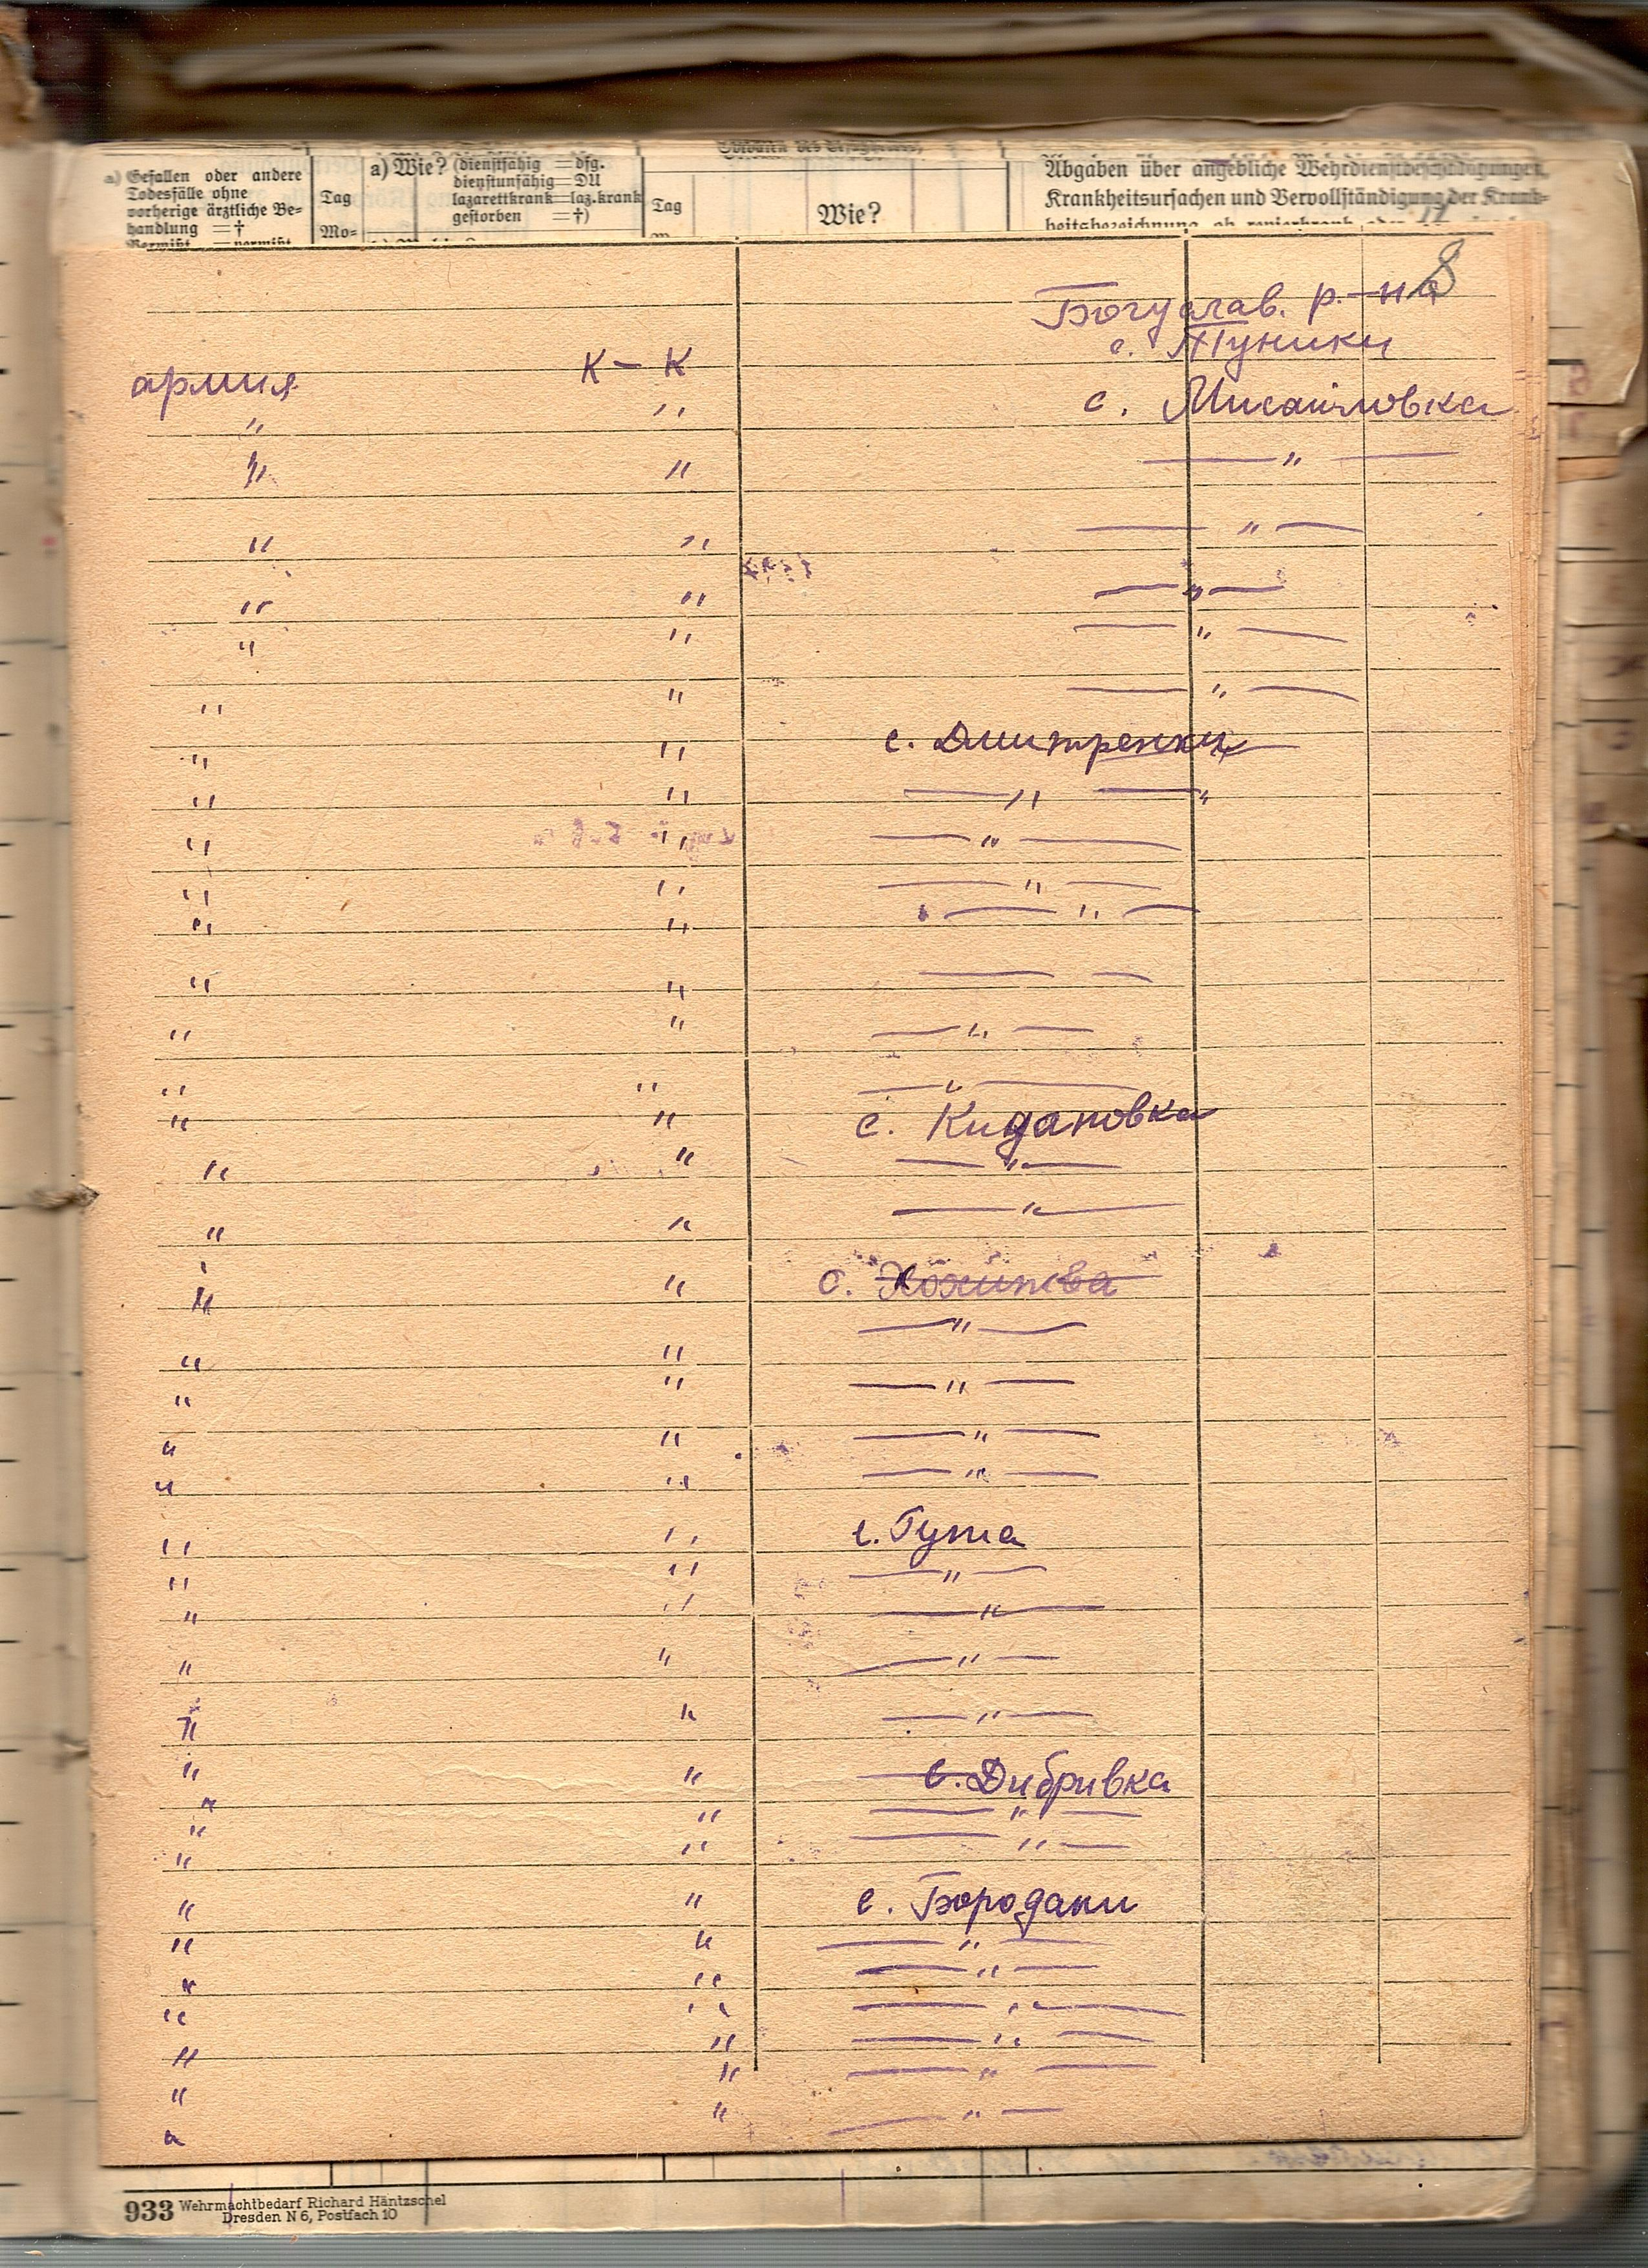 a) Gefallen oder andere
Todesfälle ohne
vorherige ärztliche Be-
handlung = †
Vermißt = vermißt
Tag
Mo-
a) Wie? (dienstfähig = dfg.
dienstunfähig = DU
lazarettkrank = laz.krank
gestorben = †)
Tag
Wie?
Abgaben über angebliche Wehrdienstbeschädigungen,
Krankheitsursachen und Vervollständigung der Krank-
heitsbezeichnung, ob revierkrank oder
8
Богуслав. р-на
с. Туники
армия К – К
" " с. Мисайловка
" " — " —
" " — " —
" " — " —
" " — " —
" " — " —
" " с. Дмитренки
" " — " —
" " — " —
" " — " —
" " — " —
" " — —
" " — " —
" " — " —
" " с. Кидановка
" " — " —
" " — " —
" " с. Хохитва
— " —
" "
" " — " —
" " — " —
" " — " —
" " с. Гута
" " — " —
" " — " —
" " — " —
" " — " —
" " с. Дибривка
" " — " —
" " — " —
" " с. Бородани
" " — " —
" " — " —
" " — " —
" " — " —
" " — " —
" " — " —
933 Wehrmachtbedarf Richard Häntzschel
Dresden N 6, Postfach 10